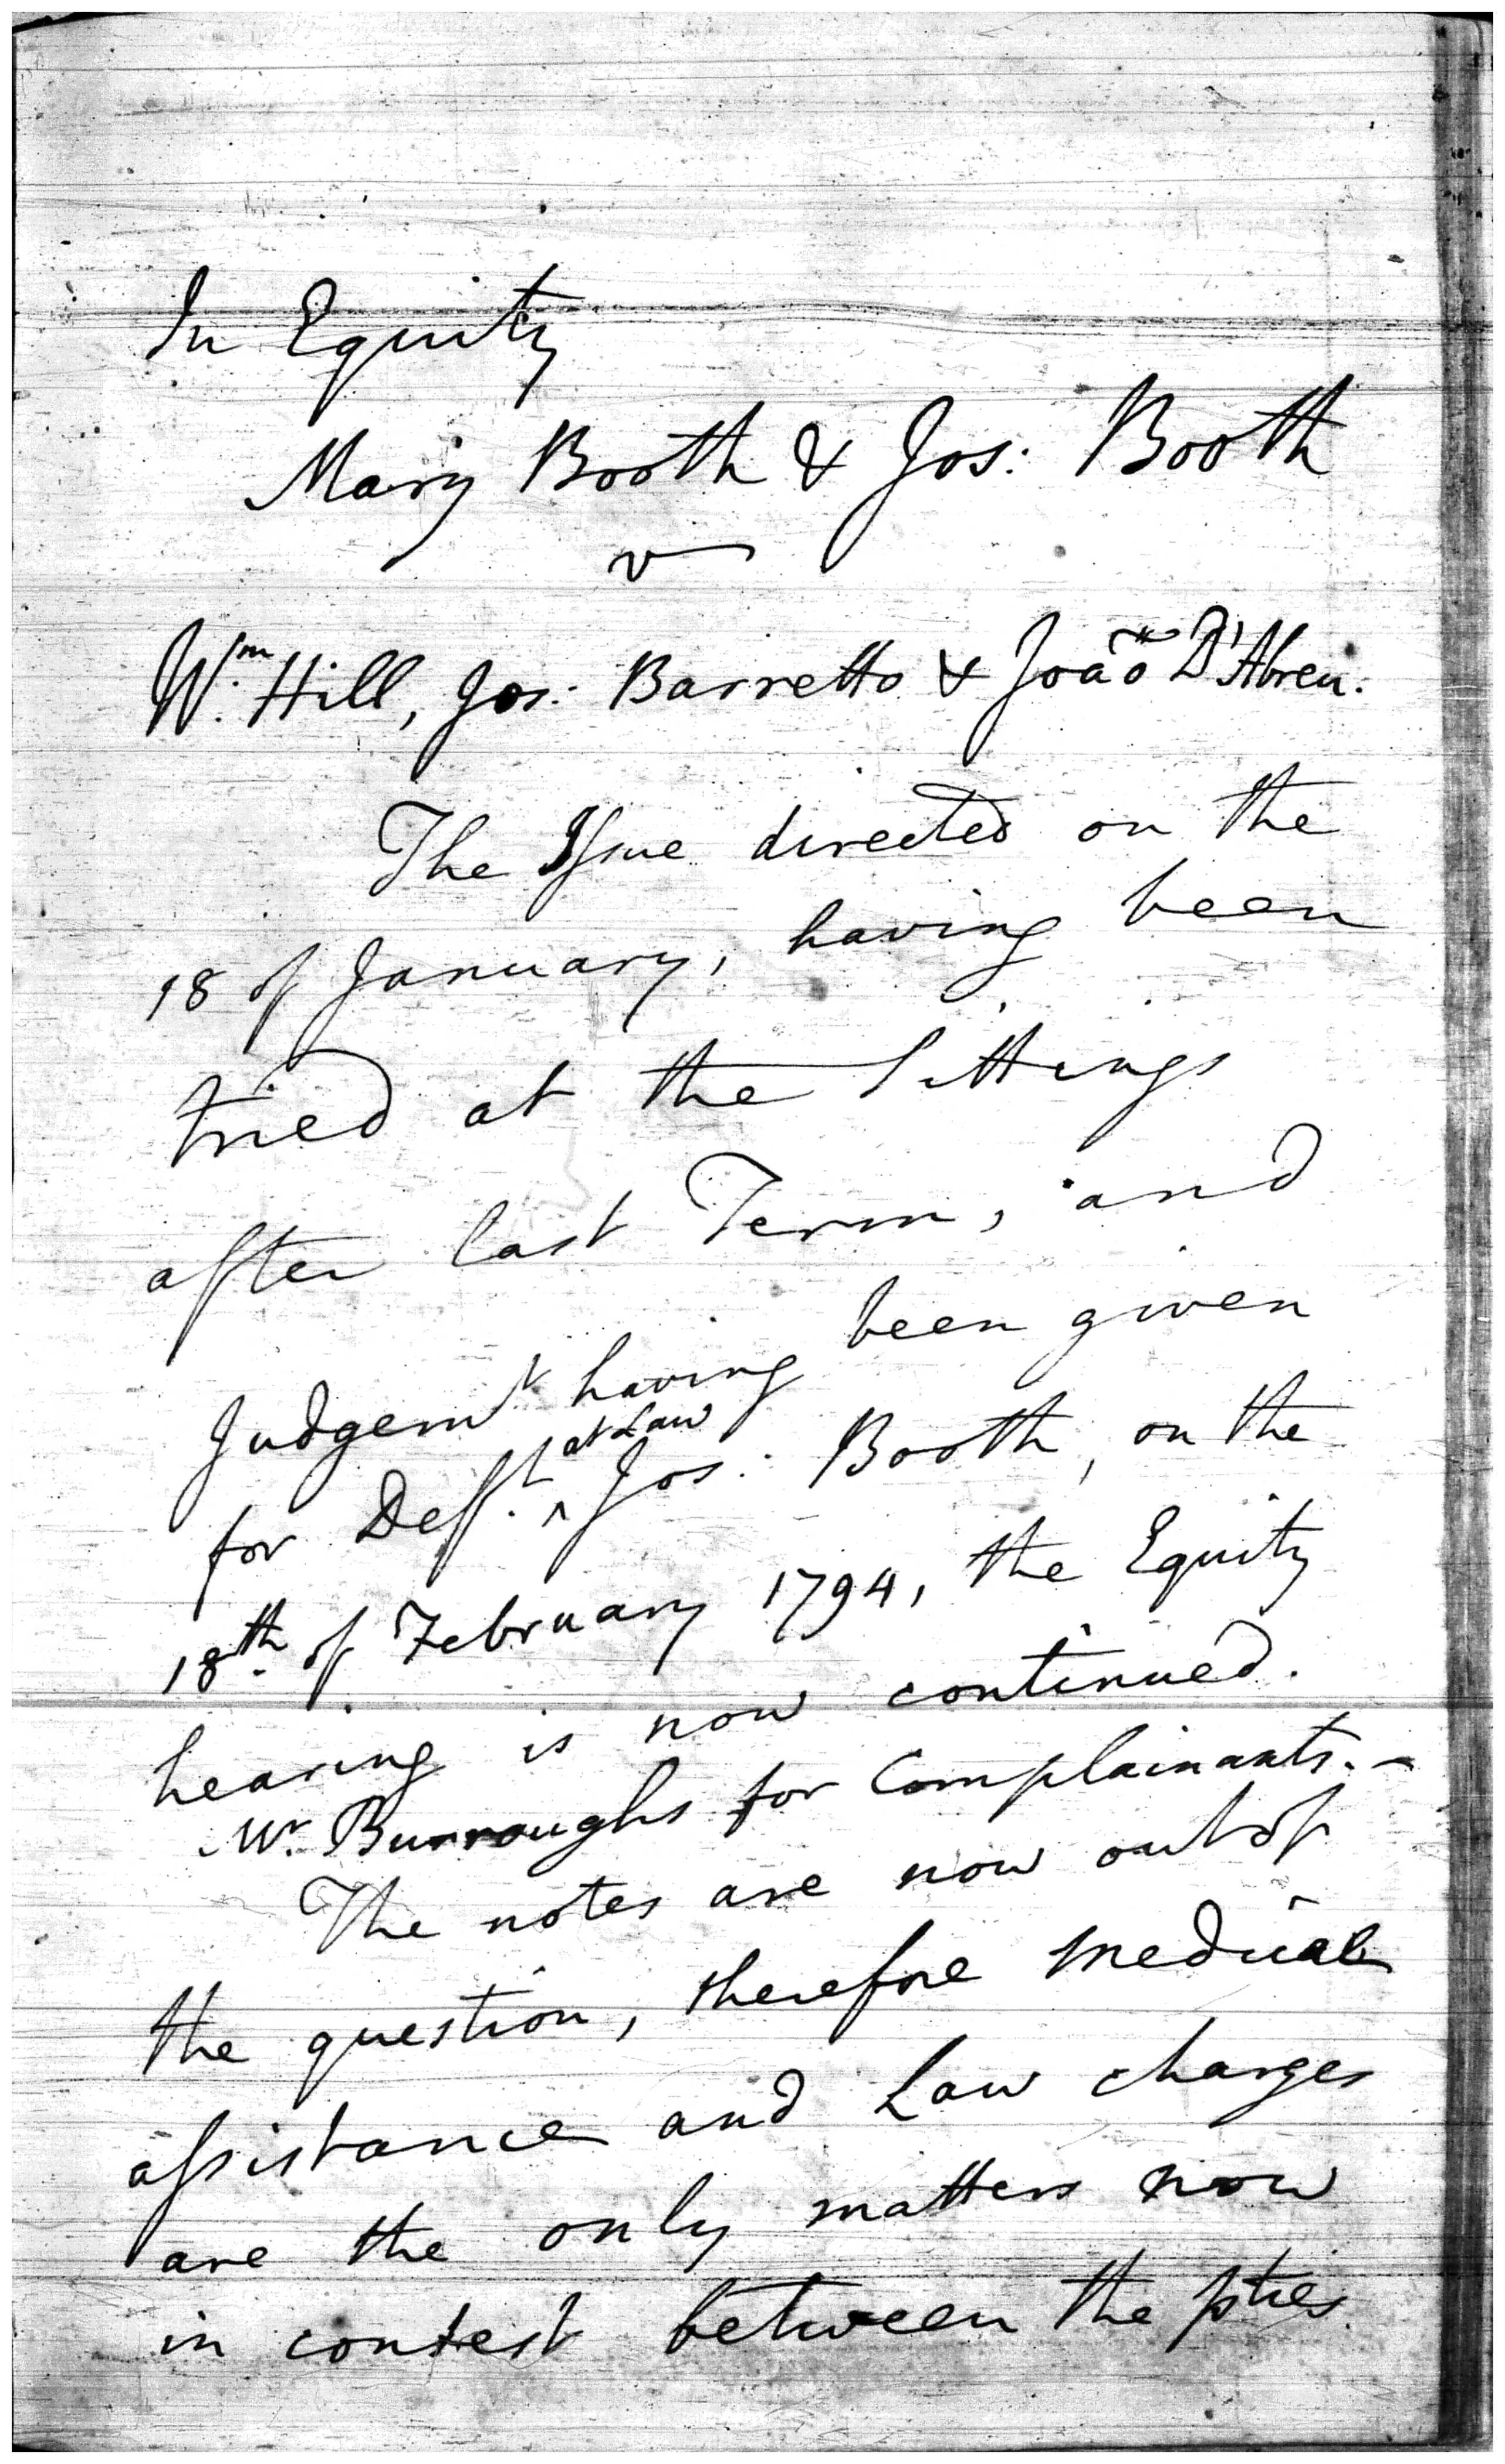 In Equity
Mary Booth & Jos: Booth
v
Wm. Hill, Jos: Barretto & João D'Abreu.
The Issue directed on the
18 of January, having been
tried at the Sittings
after last Term, and
Judgemt having been given
for Deft. ^at Law Jos: Booth, on the
18th. of February 1794, the Equity
hearing is now continued.
Mr. Burroughs for Complainants. -
The notes are now out of
the question, therefore medical
assistance and Law charges
are the only matters now
in contest between the pties.